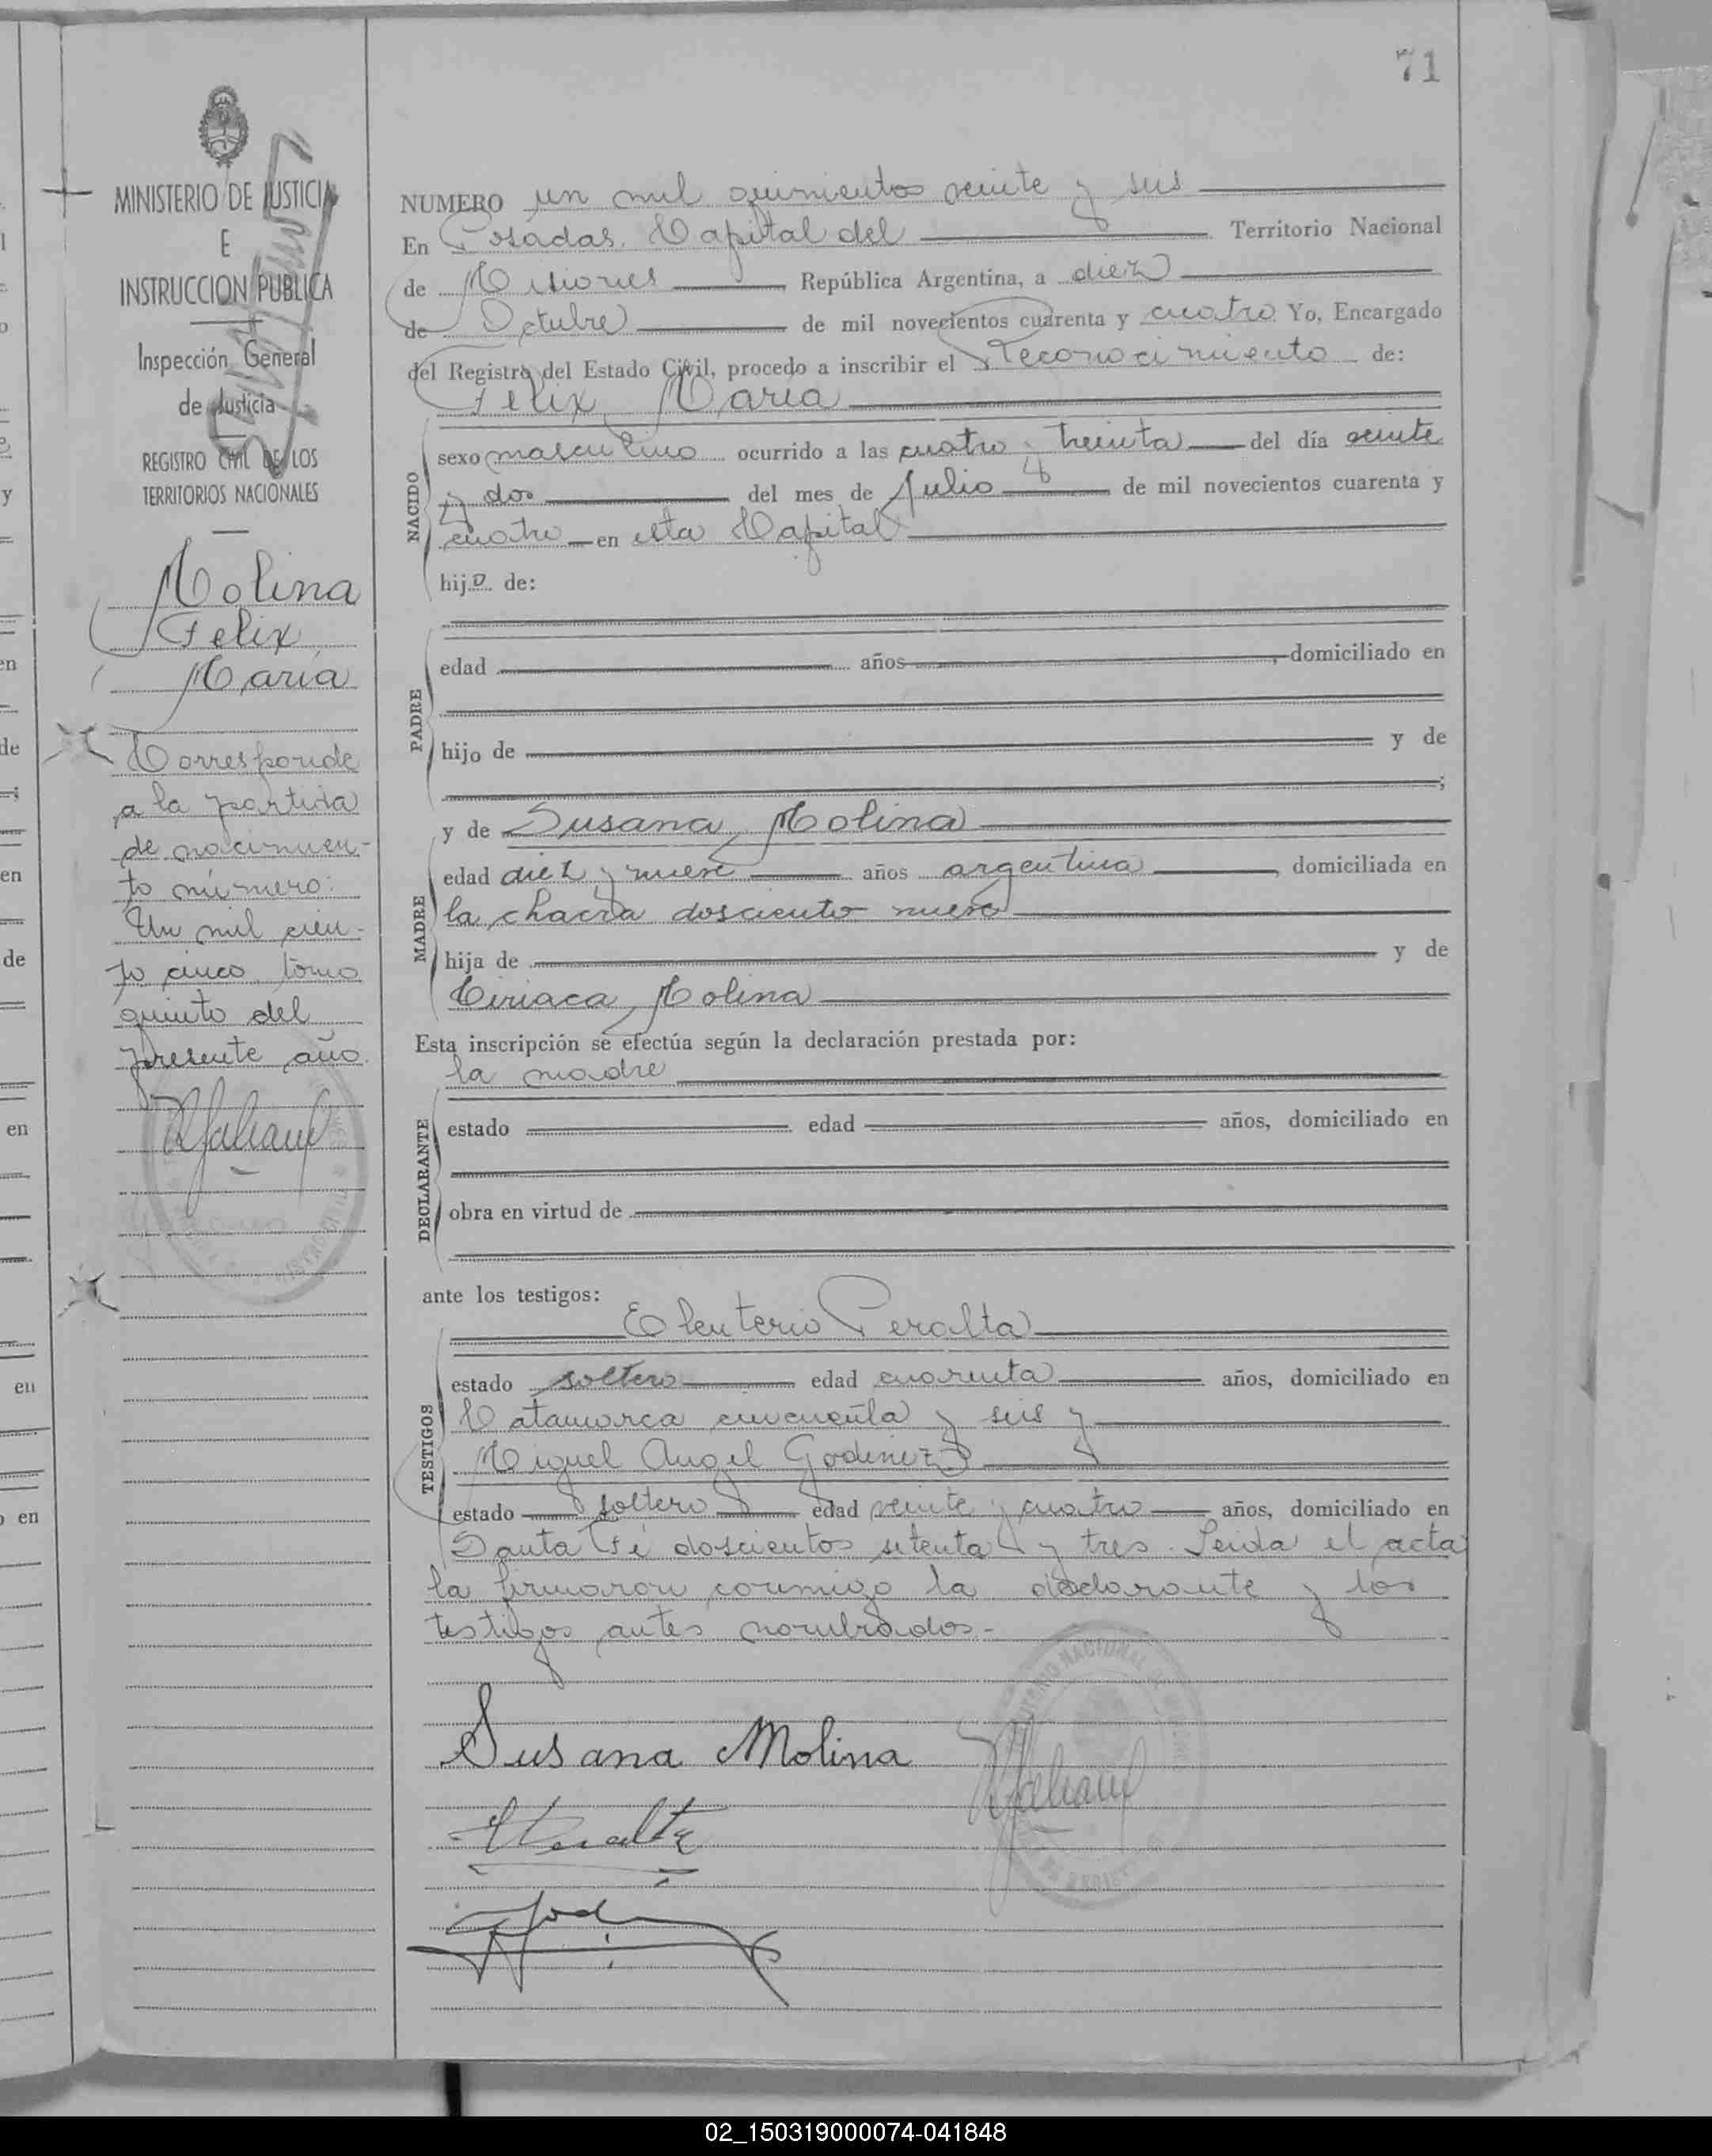 71
MINISTERIO DE JUSTICIA
E
INSTRUCCION PUBLICA
Inspección General
de Justicia
REGISTRO CIVIL DE LOS
TERRITORIOS NACIONALES
Molina
Felix
Maria
Corresponde
a la partida
de nacimien-
to número:
Un mil cien-
to cinco, tomo
quinto del
presente año.
NUMERO un mil quinientos veinte y seis
En Posadas, Capital del Territorio Nacional
de Misiones República Argentina, a diez
de Octubre de mil novecientos cuarenta y cuatro Yo, Encargado
del Registro del Estado Civil, procedo a inscribir el Reconocimiento de:
Felix Maria
NACIDO
sexo masculino ocurrido a las cuatro y treinta del día veinte
y dos del mes de Julio de mil novecientos cuarenta y
cuatro en esta Capital
hijo de:
PADRE
edad años, domiciliado en
hijo de y de
;
MADRE
y de Susana Molina
edad diez y nueve años argentina, domiciliada en
la chacra dosciento nueve
hija de y de
Ciriaca Molina
Esta inscripción se efectúa según la declaración prestada por:
la madre
DECLARANTE
estado edad años, domiciliado en
obra en virtud de
ante los testigos:
TESTIGOS
Eleuterio Peralta
estado soltero edad cuarenta años, domiciliado en
Catamarca cincuenta y seis y
Miguel Angel Godinez
estado soltero edad veinte y cuatro años, domiciliado en
Santa Fé doscientos setenta y tres. Leida el acta
la firmaron conmigo la declarante y los
testigos antes nombrados.-
Susana Molina
Peralta
02_150319000074-041848